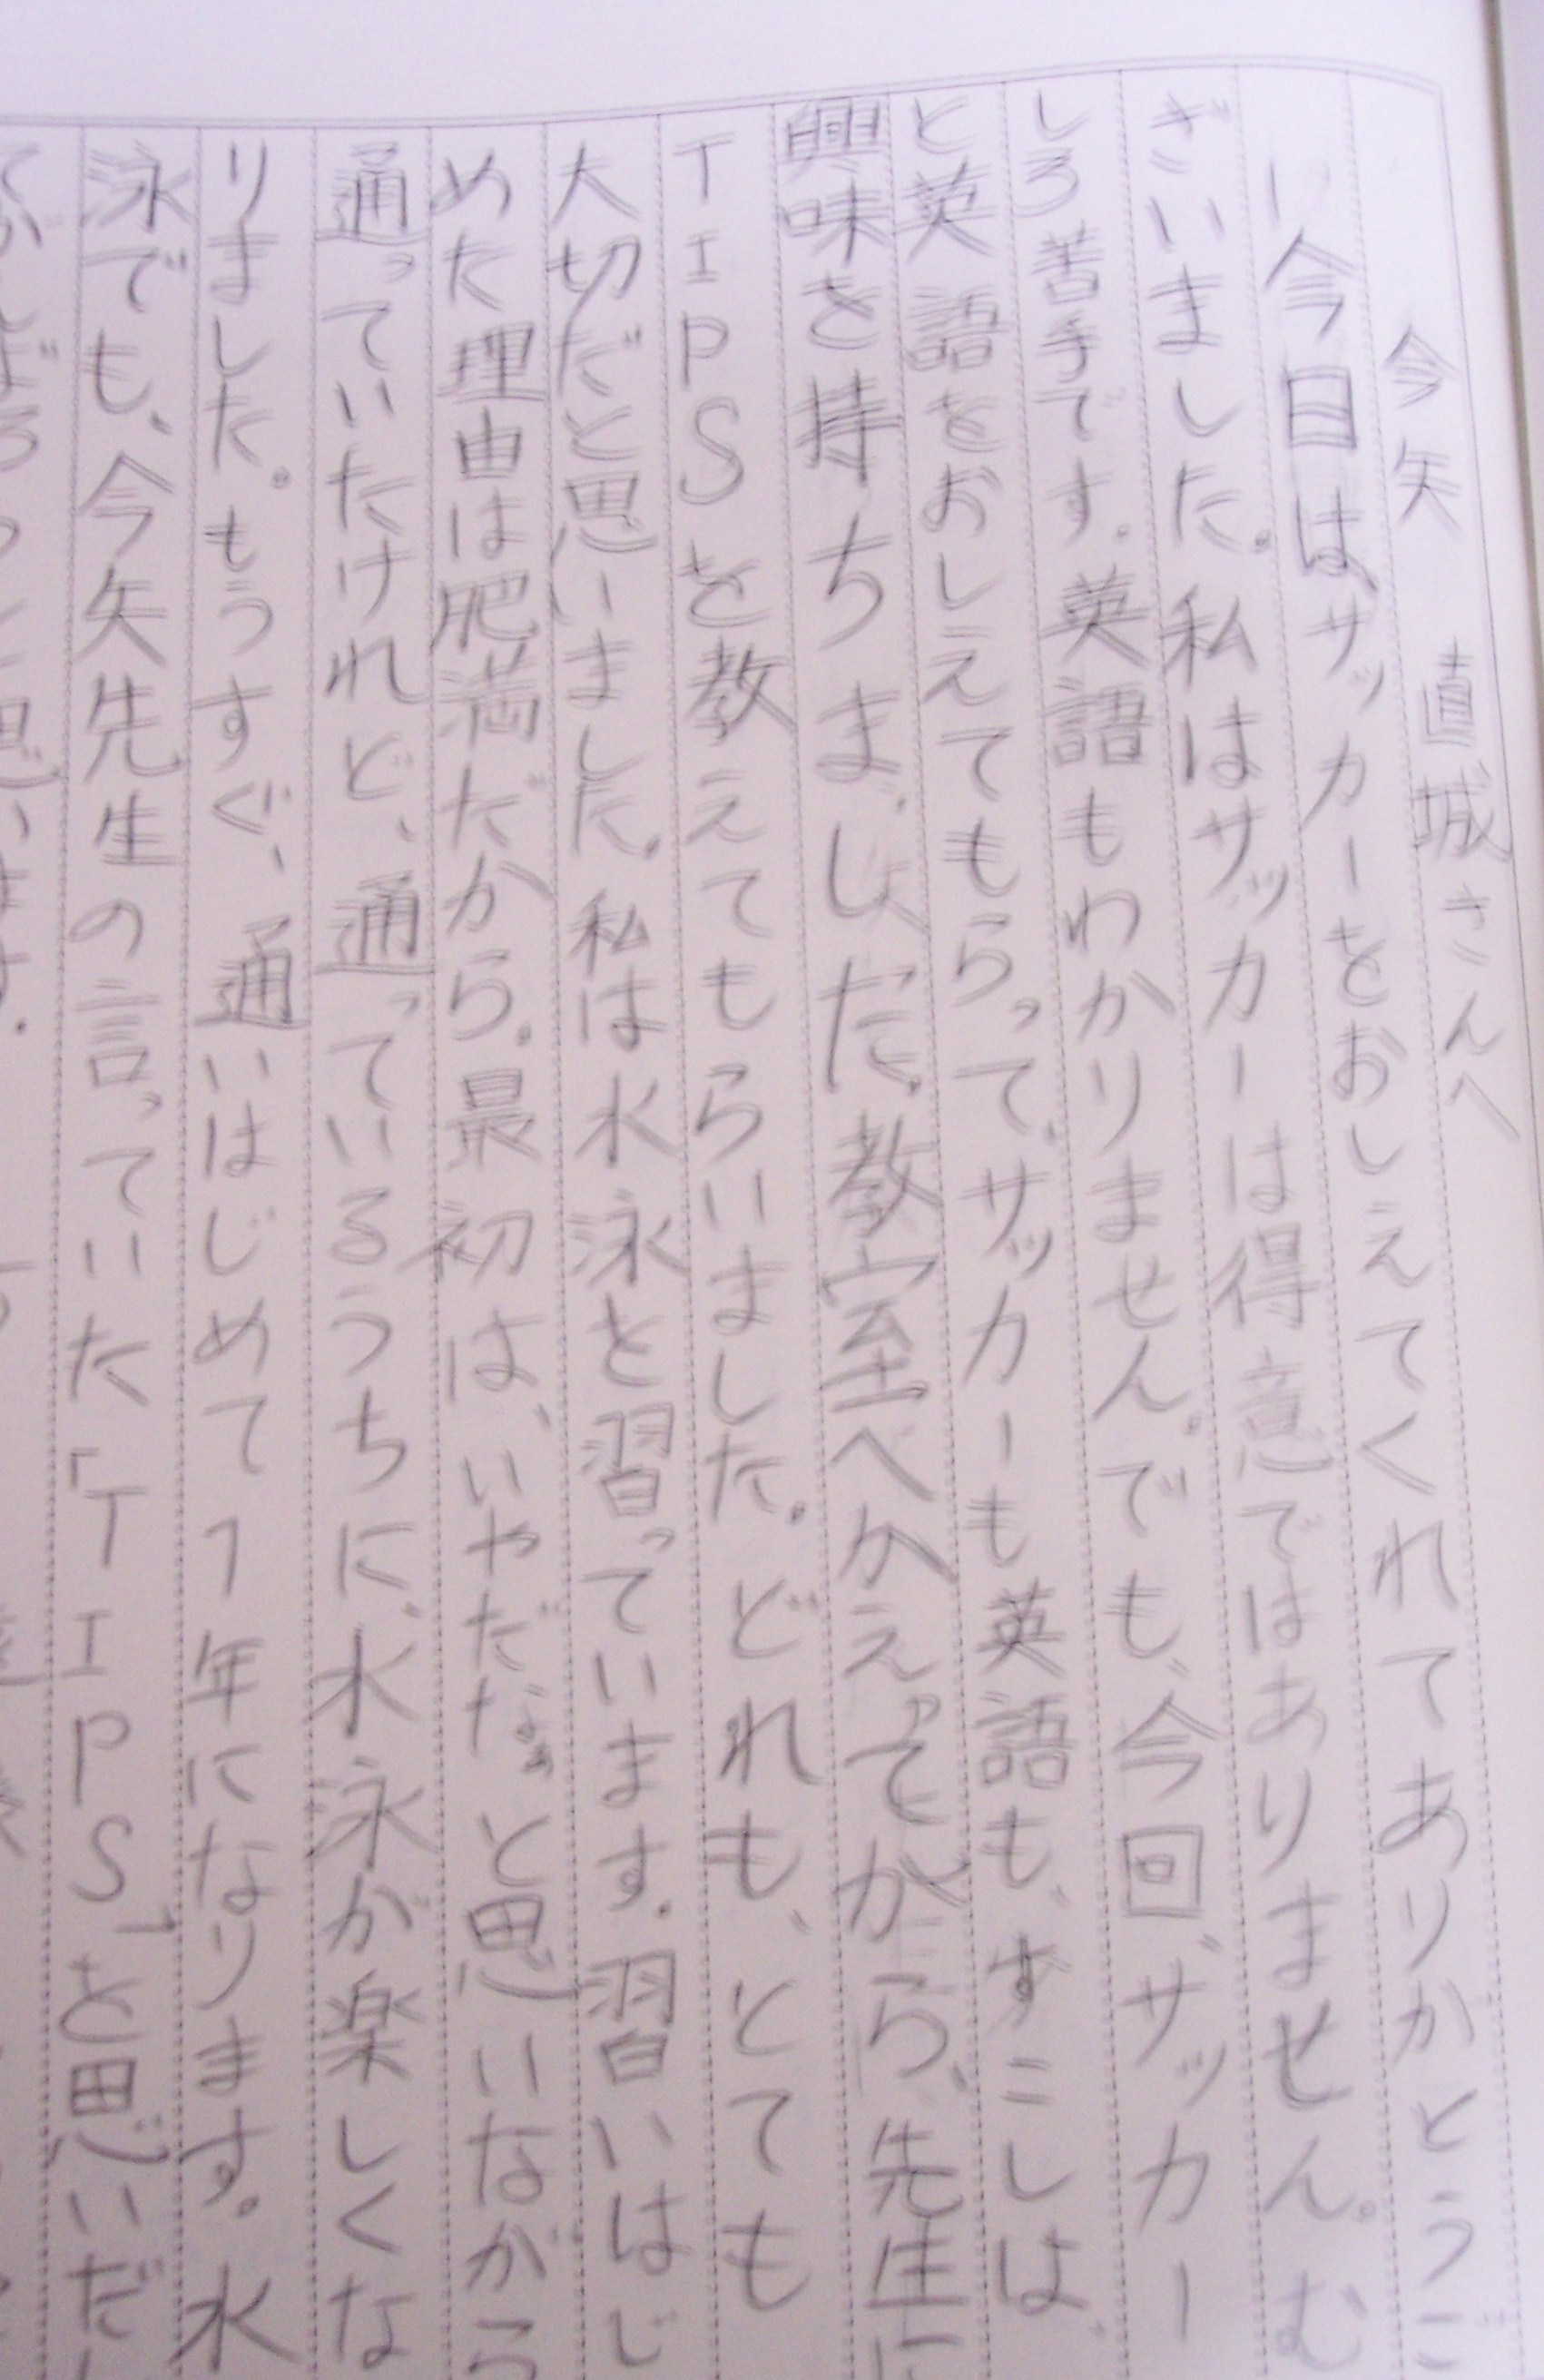 今矢 直城さんへ
今日はサッカーをおしえてくれてありがとうご
ざいました。私はサッカーは得意ではありません。む
しろ苦手です。英語もわかりません。でも、今回、サッカー
と英語をおしえてもらって、サッカーも英語も、すこしは、
興味を持ちました。教室へかえってから、先生に
TIPSを教えてもらいました。どれも、とても
大切だと思いました。私は水泳を習っています。習いはじ
めた理由は肥満だから。最初は、いやだなぁと思いながら
通っていたけれど、通っているうちに、水泳が楽しくな
りました。もうすぐ、通いはじめて1年になります。水
泳でも、今矢先生の言っていた「TIPS」を思いだし